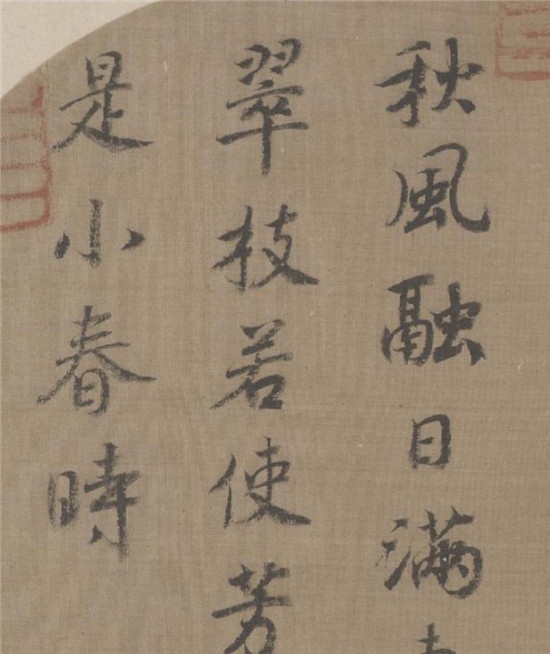 秋風融日滿
翠枝若使芳
是小春時